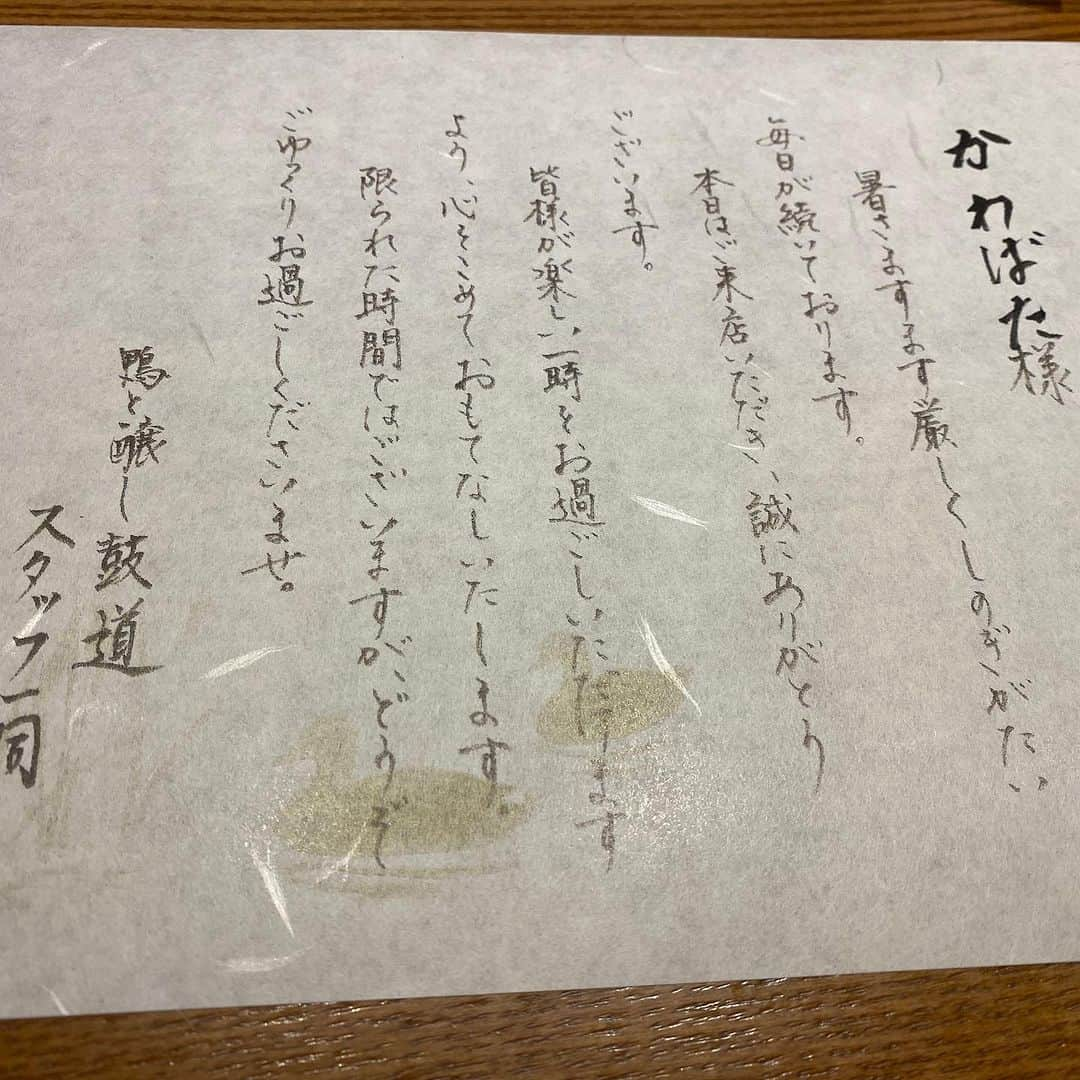 かわばた様
暑さますます厳しくしのぎがたい
毎日が続いております。
本日はご来店いただき、誠にありがとう
ございます。
皆様が楽しい一時をお過ごしいただけます
よう、心をこめておもてなしいたします。
限られた時間ではございますが、どうぞ
ごゆっくりお過ごしくださいませ。
鴨と醸し 鼓道
スタッフ一同